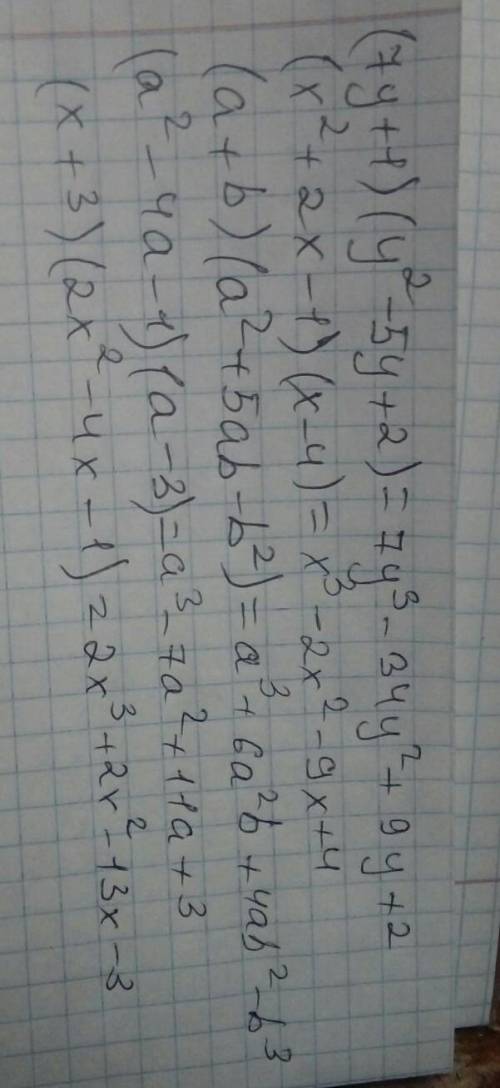 (7y+1)(y²-5y+2)=7y³-34y²+9y+2
(x²+2x-1)(x-4)=x³-2x²-9x+4
(a+b)(a²+5ab-b²)=a³+6a²b+4ab²-b³
(a²-4a-1)(a-3)=a³-7a²+11a+3
(x+3)(2x²-4x-1)=2x³+2x²-13x-3